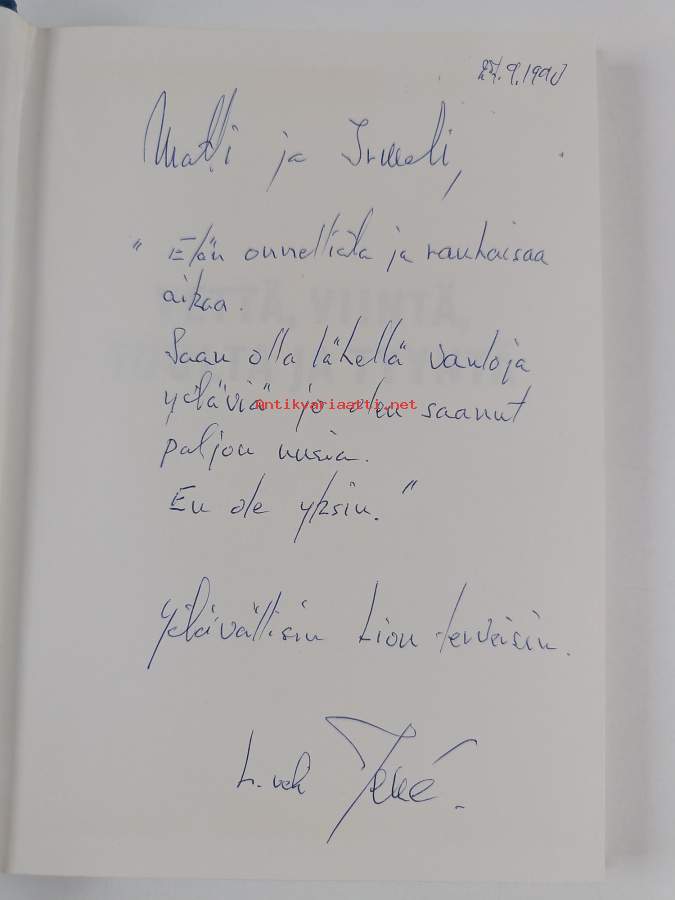 .9.1990
Matti ja Irmeli,
"Elän onnellista ja rauhaisaa
aikaa.
Saan olla lähellä vanhoja
ystäviä ja olen saanut
Antikvariaatti.net
paljon uusia.
En ole yksin."
Ystävällisin Lion terveisin.